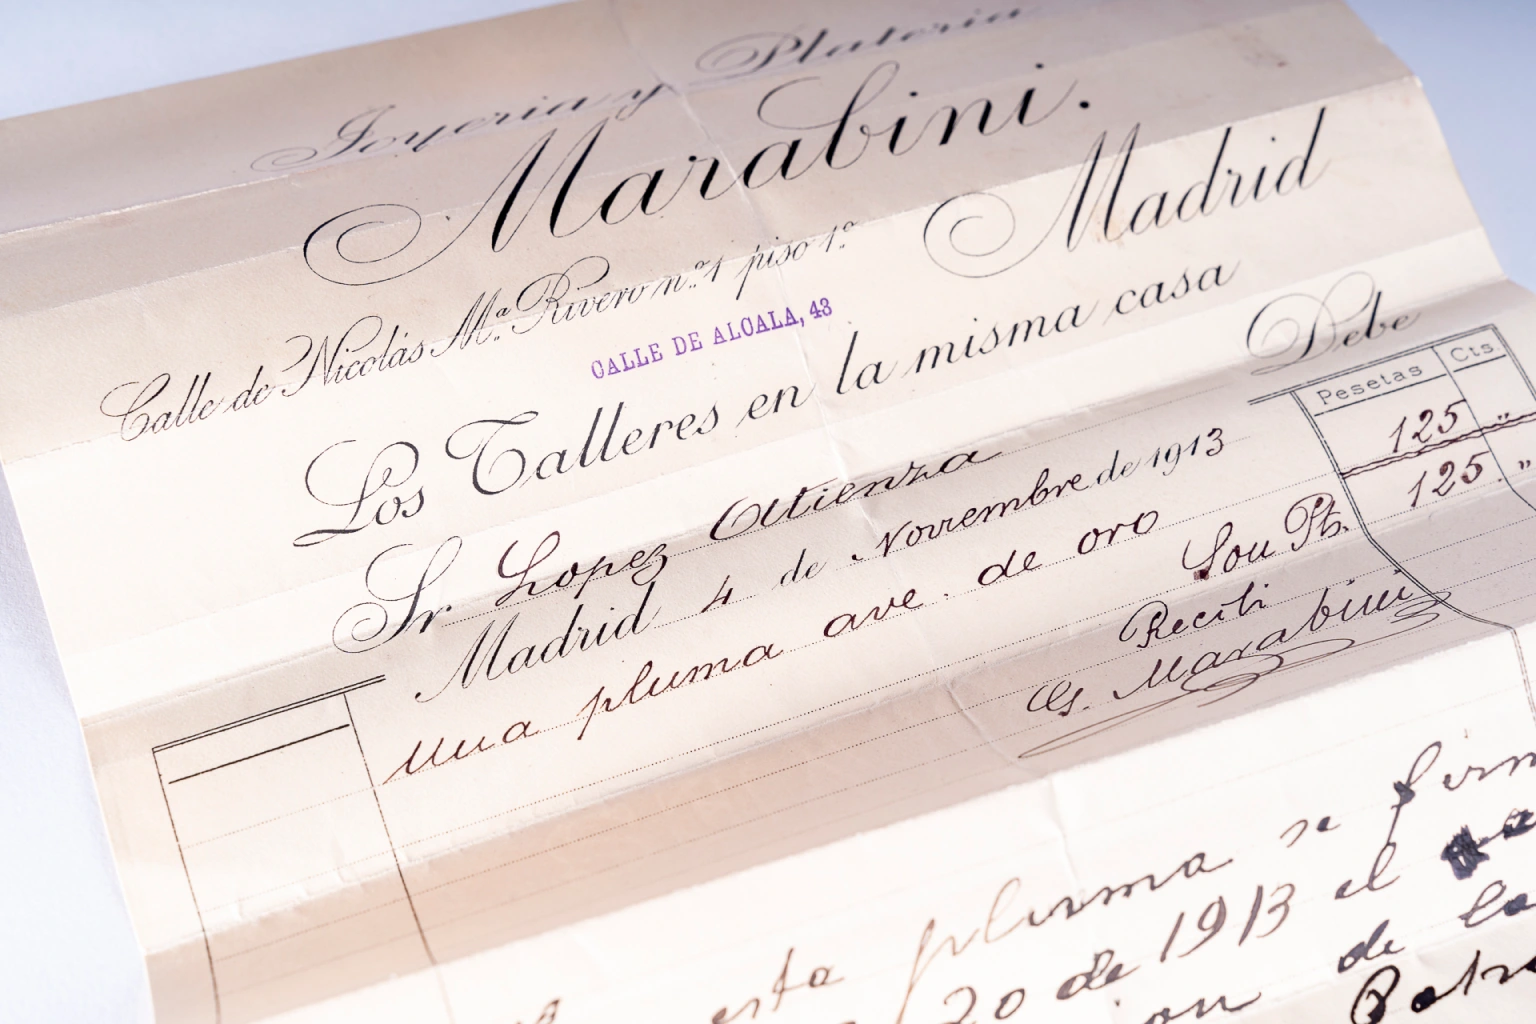 Joyeria y Plateria
Marabini.
Calle de Nicolás Mª Rivero nº 1 piso 1º Madrid
CALLE DE ALCALA, 43
Los Talleres en la misma casa
Debe
Pesetas Cts
Sr Lopez Atienza
Madrid 4 de Noviembre de 1913
una pluma ave. de oro 125 "
Son Pts. 125. "
Recibi
G. Marabini
esta pluma se firm
20 de 1913 el
de la